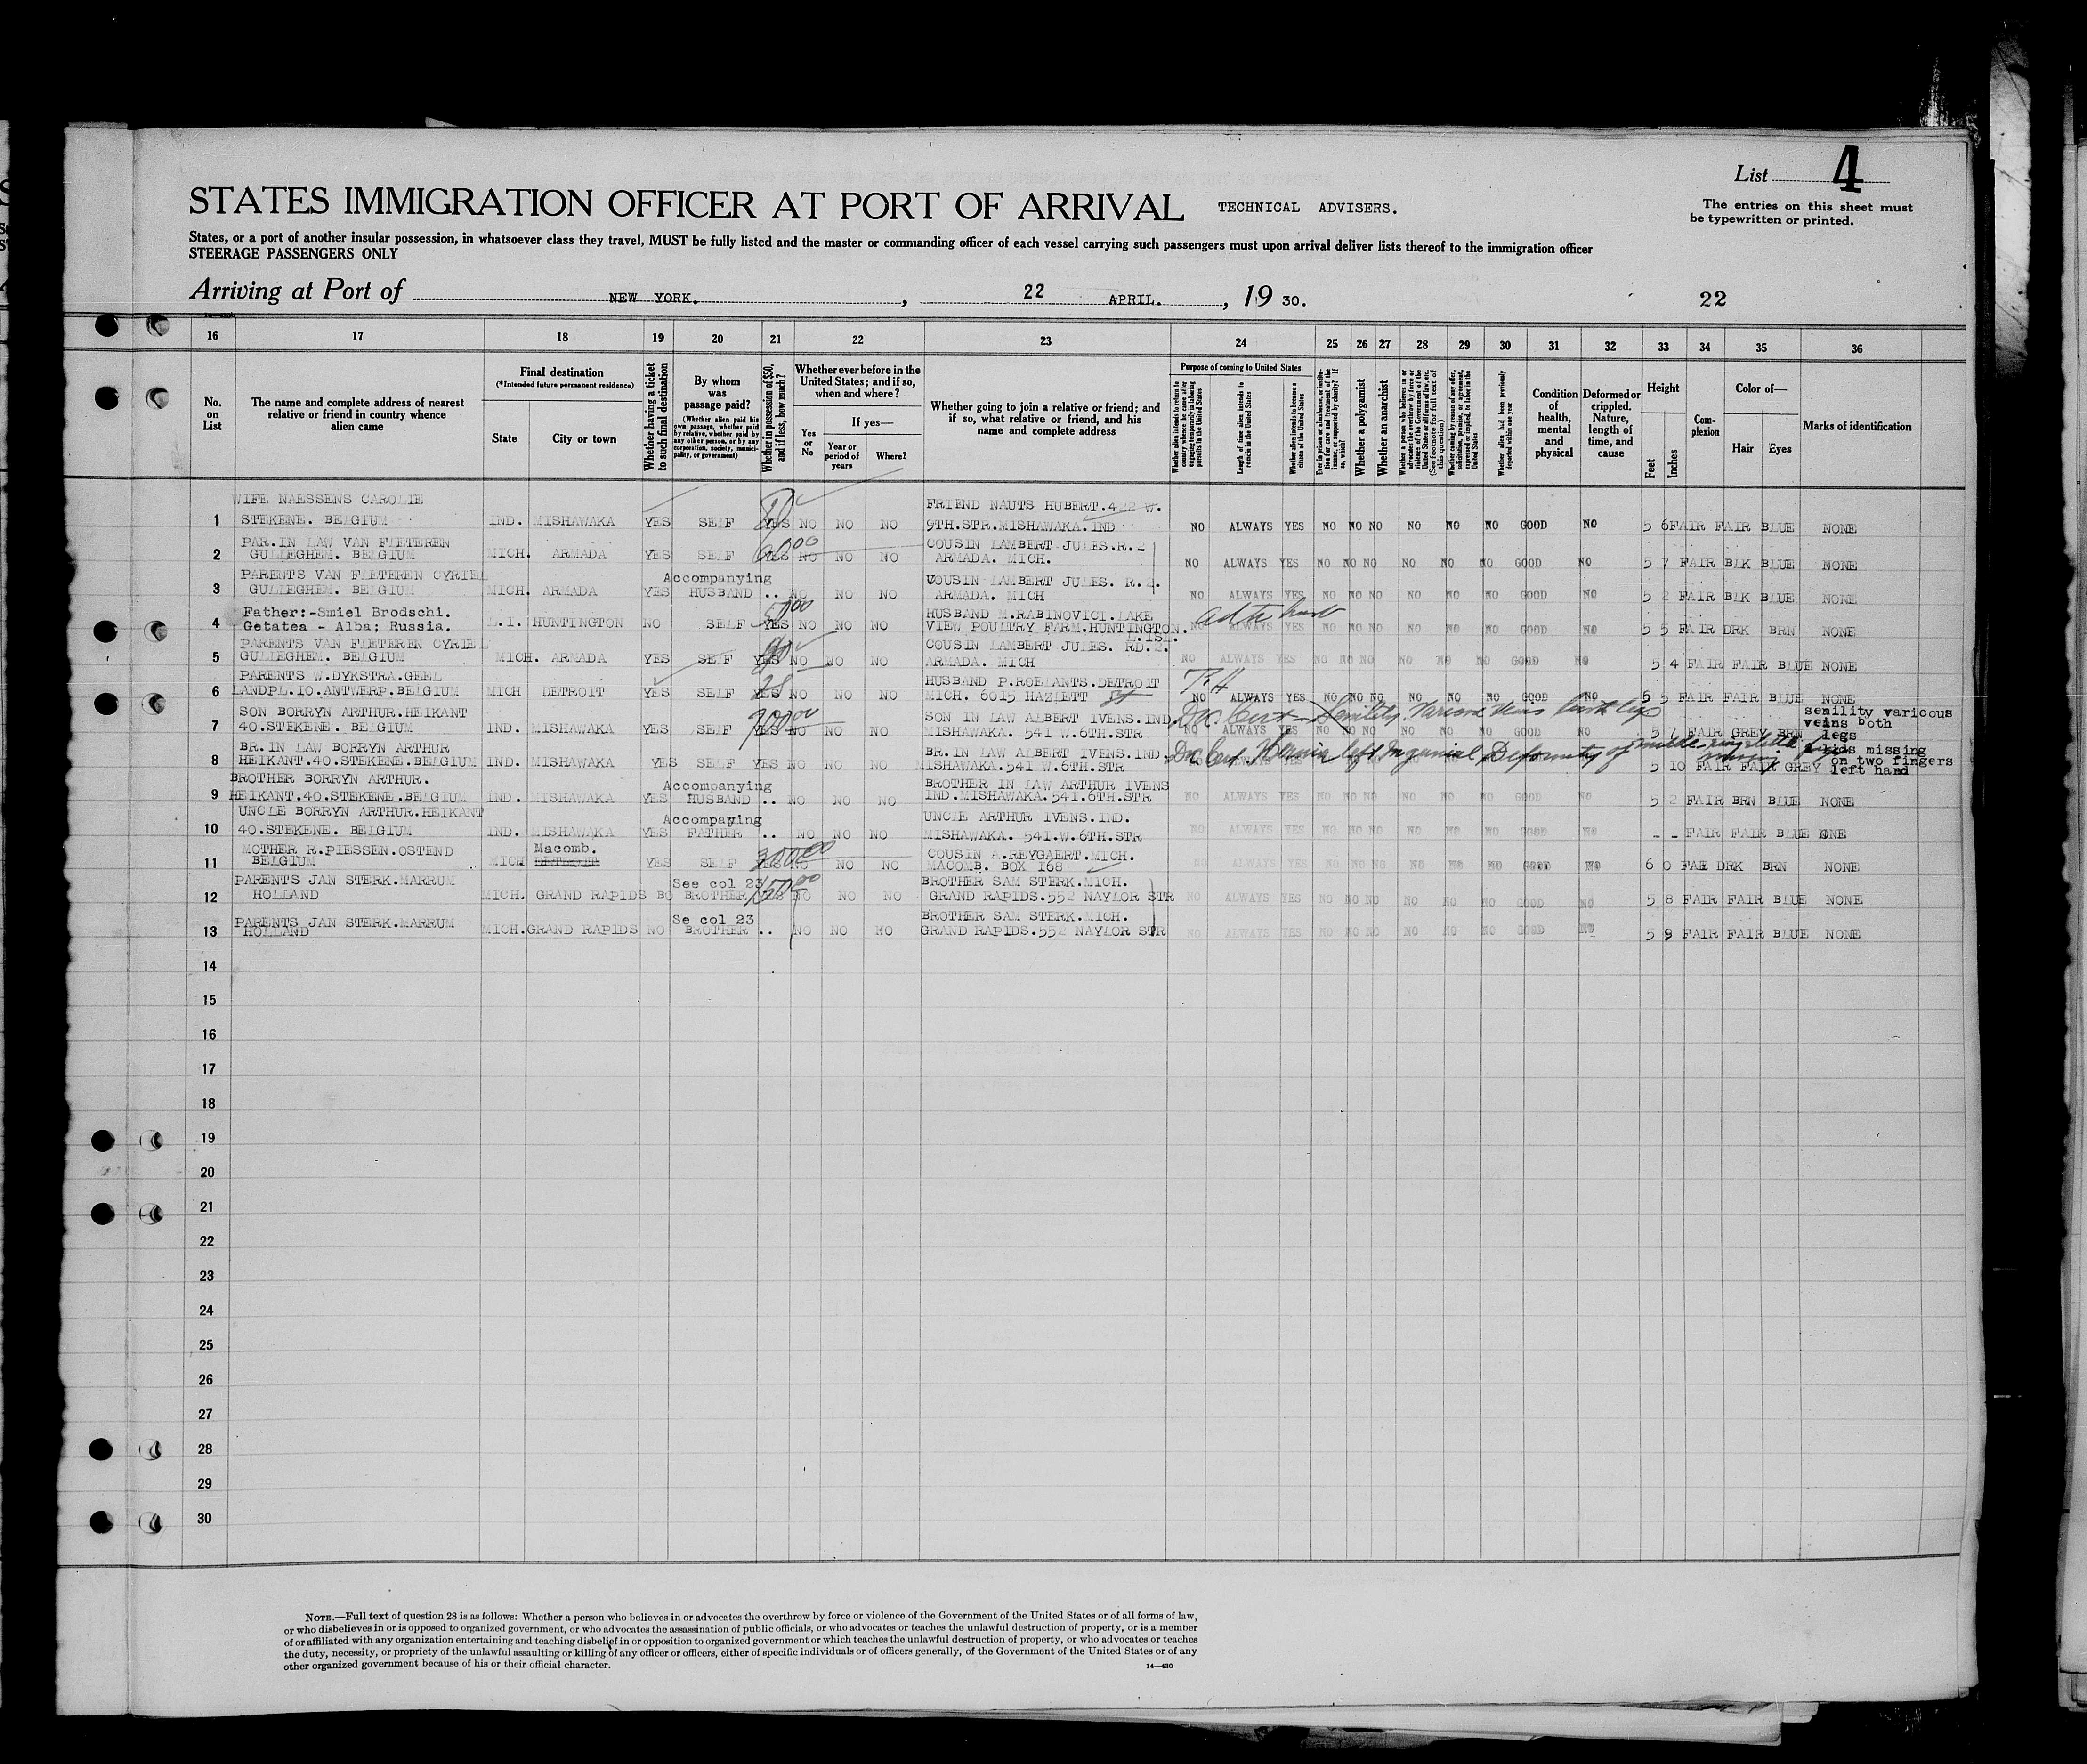 List 4
STATES IMMIGRATION OFFICER AT PORT OF ARRIVAL TECHNICAL ADVISERS.
The entries on this sheet must
be typewritten or printed.
States, or a port of another insular possession, in whatsoever class they travel, MUST be fully listed and the master or commanding officer of each vessel carrying such passengers must upon arrival deliver lists thereof to the immigration officer
STEERAGE PASSENGERS ONLY
Arriving at Port of NEW YORK. , 22 APRIL. , 19 30. 22
16 17 18 19 20 21 22 23 24 25 26 27 28 29 30 31 32 33 34 35 36
No. on List
The name and complete address of nearest relative or friend in country whence alien came
Final destination
(*Intended future permanent residence)
State
City or town
Whether having a ticket to such final destination
By whom was passage paid?
(Whether alien paid his own passage, whether paid by relative, whether paid by any other person, or by any corporation, society, municipality, or government)
Whether in possession of $50, and if less, how much?
Whether ever before in the United States; and if so, when and where?
Yes or No
If yes—
Year or period of years
Where?
Whether going to join a relative or friend; and if so, what relative or friend, and his name and complete address
Purpose of coming to United States
Whether alien intends to return to country whence he came after engaging temporarily in laboring pursuits in the United States
Length of time alien intends to remain in the United States
Whether alien intends to become a citizen of the United States
Whether a polygamist
Whether an anarchist
Condition of health, mental and physical
Deformed or crippled. Nature, length of time, and cause
Height
Feet
Inches
Complexion
Color of—
Hair
Eyes
Marks of identification
WIFE NAESSENS CAROLIE FRIEND NAUTS HUBERT.422 W.
1 STEKENE. BELGIUM IND. MISHAWAKA YES SELF YES NO NO NO 9TH.STR.MISHAWAKA.IND NO ALWAYS YES NO NO NO NO NO NO GOOD NO 5 6 FAIR FAIR BLUE NONE
PAR.IN LAW VAN FLETEREN COUSIN LAMBERT JULES.R.2
2 GULLEGHEM. BELGIUM MICH. ARMADA YES SELF YES 60.00 NO NO NO ARMADA. MICH. NO ALWAYS YES NO NO NO NO NO NO GOOD NO 5 7 FAIR BLK BLUE NONE
PARENTS VAN FLETEREN CYRIEL Accompanying COUSIN LAMBERT JULES. R. 2.
3 GULLEGHEM. BELGIUM MICH. ARMADA YES HUSBAND .. NO NO NO ARMADA. MICH NO ALWAYS YES NO NO NO NO NO NO GOOD NO 5 2 FAIR BLK BLUE NONE
Father:-Smiel Brodschi. 50.00 HUSBAND M.RABINOVICI.LAKE
4 Getatea - Alba; Russia. L.I. HUNTINGTON NO SELF YES NO NO NO VIEW POULTRY FARM.HUNTINGTON. L.ISL. NO ALWAYS YES NO NO NO NO NO NO GOOD NO 5 5 FAIR DRK BRN NONE
PARENTS VAN FLETEREN CYRIEL COUSIN LAMBERT JULES. RD.2.
5 GULLEGHEM. BELGIUM MICH. ARMADA YES SELF YES NO NO NO ARMADA. MICH NO ALWAYS YES NO NO NO NO NO NO GOOD NO 5 4 FAIR FAIR BLUE NONE
PARENTS W.DYKSTRA.GEEL 25 HUSBAND P.ROELANTS.DETROIT
6 LANDPL.10.ANTWERP.BELGIUM MICH DETROIT YES SELF YES NO NO NO MICH. 6015 HAZLETT St NO ALWAYS YES NO NO NO NO NO NO GOOD NO 5 5 FAIR FAIR BLUE NONE
SON BORRYN ARTHUR.HEIKANT SON IN LAW ALBERT IVENS.IND Dr. Cert- Senility Varicose Veins both legs senility varicous
7 40.STEKENE. BELGIUM IND. MISHAWAKA YES SELF YES NO NO NO MISHAWAKA. 541 W.6TH.STR NO ALWAYS YES NO NO NO NO NO NO GOOD NO 5 7 FAIR GREY BRN veins both legs
BR.IN LAW BORRYN ARTHUR BR.IN LAW ALBERT IVENS.IND. Dr. Cert Hernia left Inguinal Deformity of
8 HEIKANT.40.STEKENE.BELGIUM IND. MISHAWAKA YES SELF YES NO NO NO MISHAWAKA.541 W.6TH.STR 5 10 FAIR FAIR GREY missing on two fingers left hand
BROTHER BORRYN ARTHUR. Accompanying BROTHER IN LAW ARTHUR IVENS
9 HEIKANT.40.STEKENE.BELGIUM IND. MISHAWAKA YES HUSBAND .. NO NO NO IND.MISHAWAKA.541.6TH.STR NO ALWAYS YES NO NO NO NO NO NO GOOD NO 5 2 FAIR BRN BLUE NONE
UNCLE BORRYN ARTHUR.HEIKANT Accompaying UNCLE ARTHUR IVENS.IND.
10 40.STEKENE. BELGIUM IND. MISHAWAKA YES FATHER .. NO NO NO MISHAWAKA. 541.W.6TH.STR NO ALWAYS YES NO NO NO NO NO NO GOOD NO - - FAIR FAIR BLUE
MOTHER R.PIESSEN.OSTEND Macomb. COUSIN A.REYGAERT.MICH.
11 BELGIUM MICH YES SELF 300.00 NO NO NO MACOMB. BOX 168 NO ALWAYS YES NO NO NO NO NO NO GOOD NO 6 0 DRK BRN NONE
PARENTS JAN STERK.MARRUM See col 23 BROTHER SAM STERK.MICH.
12 HOLLAND MICH. GRAND RAPIDS BROTHER YES 150.00 NO NO NO GRAND RAPIDS.552 NAYLOR STR NO ALWAYS YES NO NO NO NO NO NO GOOD NO 5 8 FAIR FAIR BLUE NONE
PARENTS JAN STERK.MARRUM Se col 23 BROTHER SAM STERK.MICH.
13 HOLLAND MICH.GRAND RAPIDS NO BROTHER .. NO NO NO GRAND RAPIDS.552 NAYLOR STR NO ALWAYS YES NO NO NO NO NO NO GOOD NO 5 9 FAIR FAIR BLUE NONE
14
15
16
17
18
19
20
21
22
23
24
25
26
27
28
29
30
NOTE.—Full text of question 28 is as follows: Whether a person who believes in or advocates the overthrow by force or violence of the Government of the United States or of all forms of law,
or who disbelieves in or is opposed to organized government, or who advocates the assassination of public officials, or who advocates or teaches the unlawful destruction of property, or is a member
of or affiliated with any organization entertaining and teaching disbelief in or opposition to organized government or which teaches the unlawful destruction of property, or who advocates or teaches
the duty, necessity, or propriety of the unlawful assaulting or killing of any officer or officers, either of specific individuals or of officers generally, of the Government of the United States or of any
other organized government because of his or their official character.
14—430